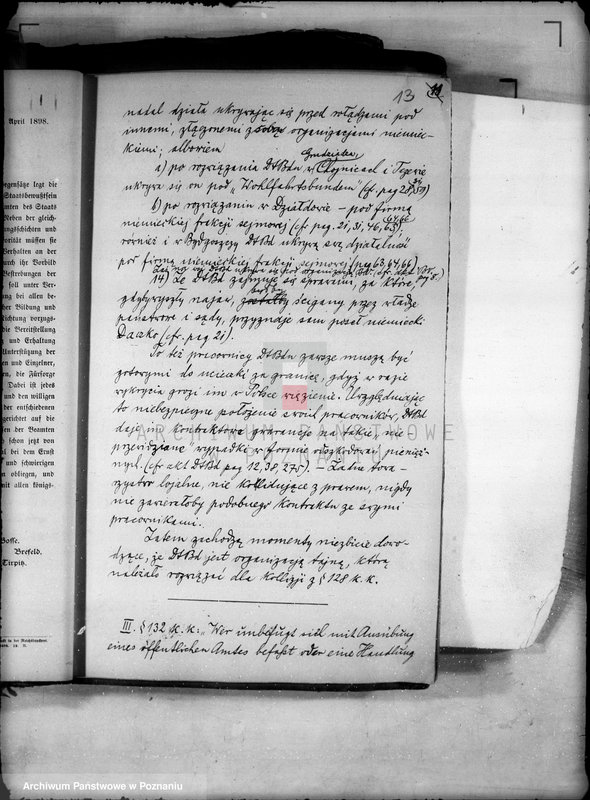 April 1898.
egensätze legt die
Staatsbewußtsein
amten des Staats
Neben der gleich-
ungsschichten und
orität müssen sie
Verhalten an der
urch ihr Vorbild
Bestrebungen der
soll unter Ver-
ng bei allen be-
er Bildung und
Richtung vorzugs-
die Bereitstellung
und Erhaltung
Unterstützung der
en und Einzelner,
en, die Fürsorge
Dabei ist jedes
und den willigen
der entschiedenen
gerichtet auf die
sen der Beamten
schon jetzt von
al bei dem Ernst
und schwierigen
n obliegen, und
it allen königs-
Bosse.
Brefeld.
Tirpitz.
13 11
nadal działa ukrywając się przed władzami pod
innemi, złączonemi z sobą organizacjami niemiec-
kiemi; albowiem
Grudziądzu,
a) po rozwiązaniu DtBdu w Chojnicach i Tczewie
ukrywa się on pod „Wohlfahrtsbundem” (cf. pag 28,
b) po rozwiązaniu w Działdowie – pod firmą
niemieckiej frakcji sejmowej (cfr pag. 21, 31, 46, 63,
również i w Bydgoszczy DtBd ukrywa swą działalność
pod firmą niemieckiej frakcji sejmowej (pag 63, 64, 66)
14) Że DtBd zajmuje się sprawami, za które,
gdyby wyszły najaw, byłby ścigany przez władze
państwowe i sądy, przyznaje sam poseł niemiecki
Daczko (cfr. pag 21).
To też pracownicy DtBdu zawsze muszą być
gotowymi do ucieczki za granicę, gdyż w razie
wykrycia grozi im w Polsce więzienie. Uwzględniając
to niebezpieczne położenie swoich pracowników, DtBd
daje im kontraktową gwarancję na takie, „nie
przewidziane” wypadki w formie odszkodowań pienięż-
nych. (cfr akt DtBd pag 12, 38, 275). – Żadne towa-
rzystwo lojalne, nie kolidujące z prawem, nigdy
nie zawierałoby podobnego kontraktu ze swymi
pracownikami.
Zatem zachodzą momenty niezbicie dowo-
dzące, że DtBd jest organizacją tajną, którą
należało rozwiązać dla kollizji z § 128 k.k.
III. § 132 k.k.: „Wer unbefugt sich mit Ausübung
eines öffentlichen Amtes befaßt oder eine Handlung
ARCHIWUM PAŃSTWOWE
Archiwum Państwowe w Poznaniu